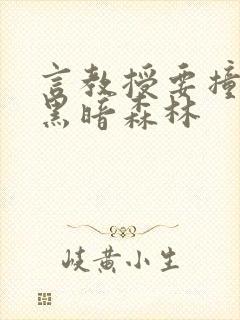 言教授要撞
黑暗森林
岐黄小生